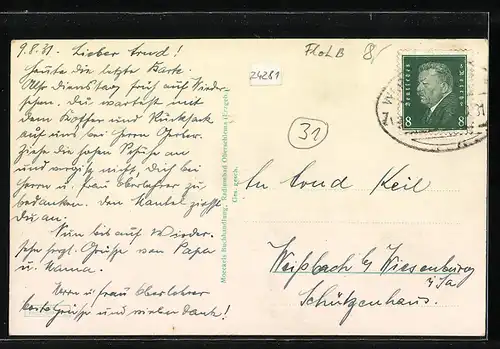 9.8.31. Lieber Arnd!
Heute die letzte Karte.
Also Dienstag früh auf Wieder-
sehen. Du wartest mit
dem Koffer und Rucksack
auf uns bei Herrn
Ziehe die hohen Schuhe an
und vergiß nicht, dich bei
Herrn u. Frau Oberlehrer zu
bedanken. Den Mantel ziehst
Du an.
Nun bis auf Wieder-
sehn Grüße von Papa
u. Mama.
Herrn u. Frau Oberlehrer
Grüße und vielen Dank!
Buchhandlung, Radiumbad Oberschlema (Erzgeb.)
Ges. gesch.
24281
8/
31
Deutsches Reich
8 8
An Arnd Keil
Weißbach b/ Wiesenburg
i/Sa
Schützenhaus.